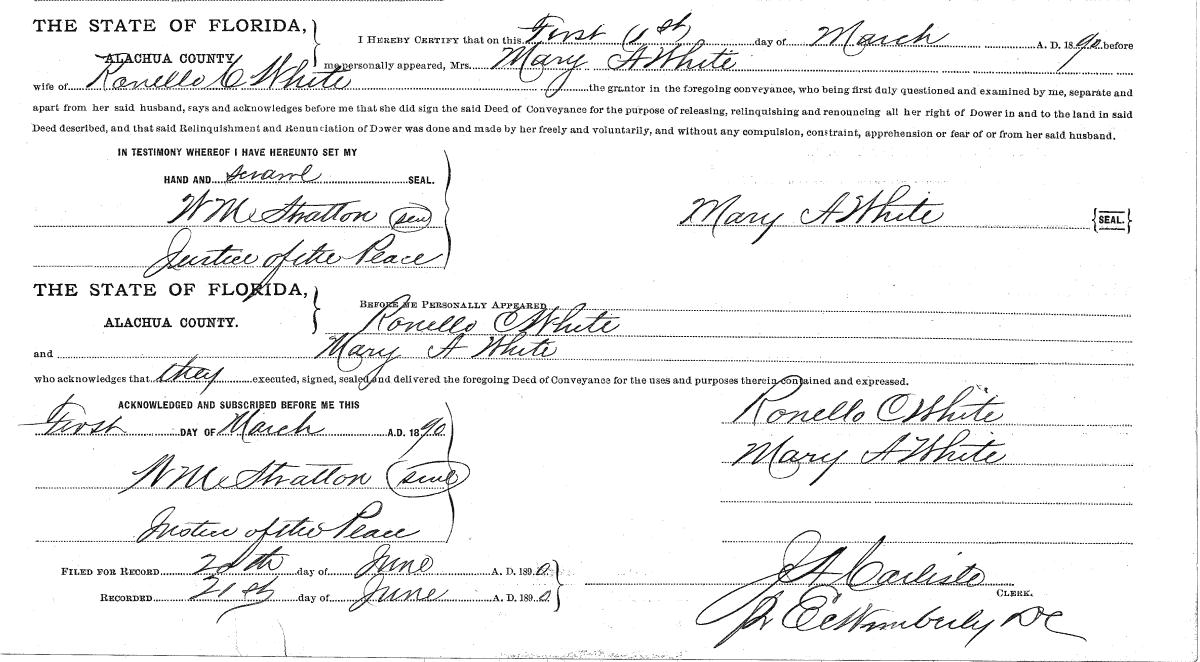 THE STATE OF FLORIDA,
ALACHUA COUNTY.
I HEREBY CERTIFY that on this First (1st) day of March A. D. 1890 before
me personally appeared, Mrs. Mary A White
wife of Ronello C White the grantor in the foregoing conveyance, who being first duly questioned and examined by me, separate and
apart from her said husband, says and acknowledges before me that she did sign the said Deed of Conveyance for the purpose of releasing, relinquishing and renouncing all her right of Dower in and to the land in said
Deed described, and that said Relinquishment and Renunciation of Dower was done and made by her freely and voluntarily, and without any compulsion, constraint, apprehension or fear of or from her said husband.
IN TESTIMONY WHEREOF I HAVE HEREUNTO SET MY
HAND AND SEAL.
W M Stratton (seal)
Justice of the Peace
Mary A White {SEAL.}
THE STATE OF FLORIDA,
ALACHUA COUNTY.
BEFORE ME PERSONALLY APPEARED
Ronello C White
and Mary A White
who acknowledges that they executed, signed, sealed and delivered the foregoing Deed of Conveyance for the uses and purposes therein contained and expressed.
ACKNOWLEDGED AND SUBSCRIBED BEFORE ME THIS
First DAY OF March A.D. 1890
W M Stratton (seal)
Justice of the Peace
Ronello C White
Mary A White
FILED FOR RECORD 20th day of June A. D. 1890
RECORDED 21st day of June A. D. 1890
J A Carlisle
CLERK.
pr E C Wimberly DC